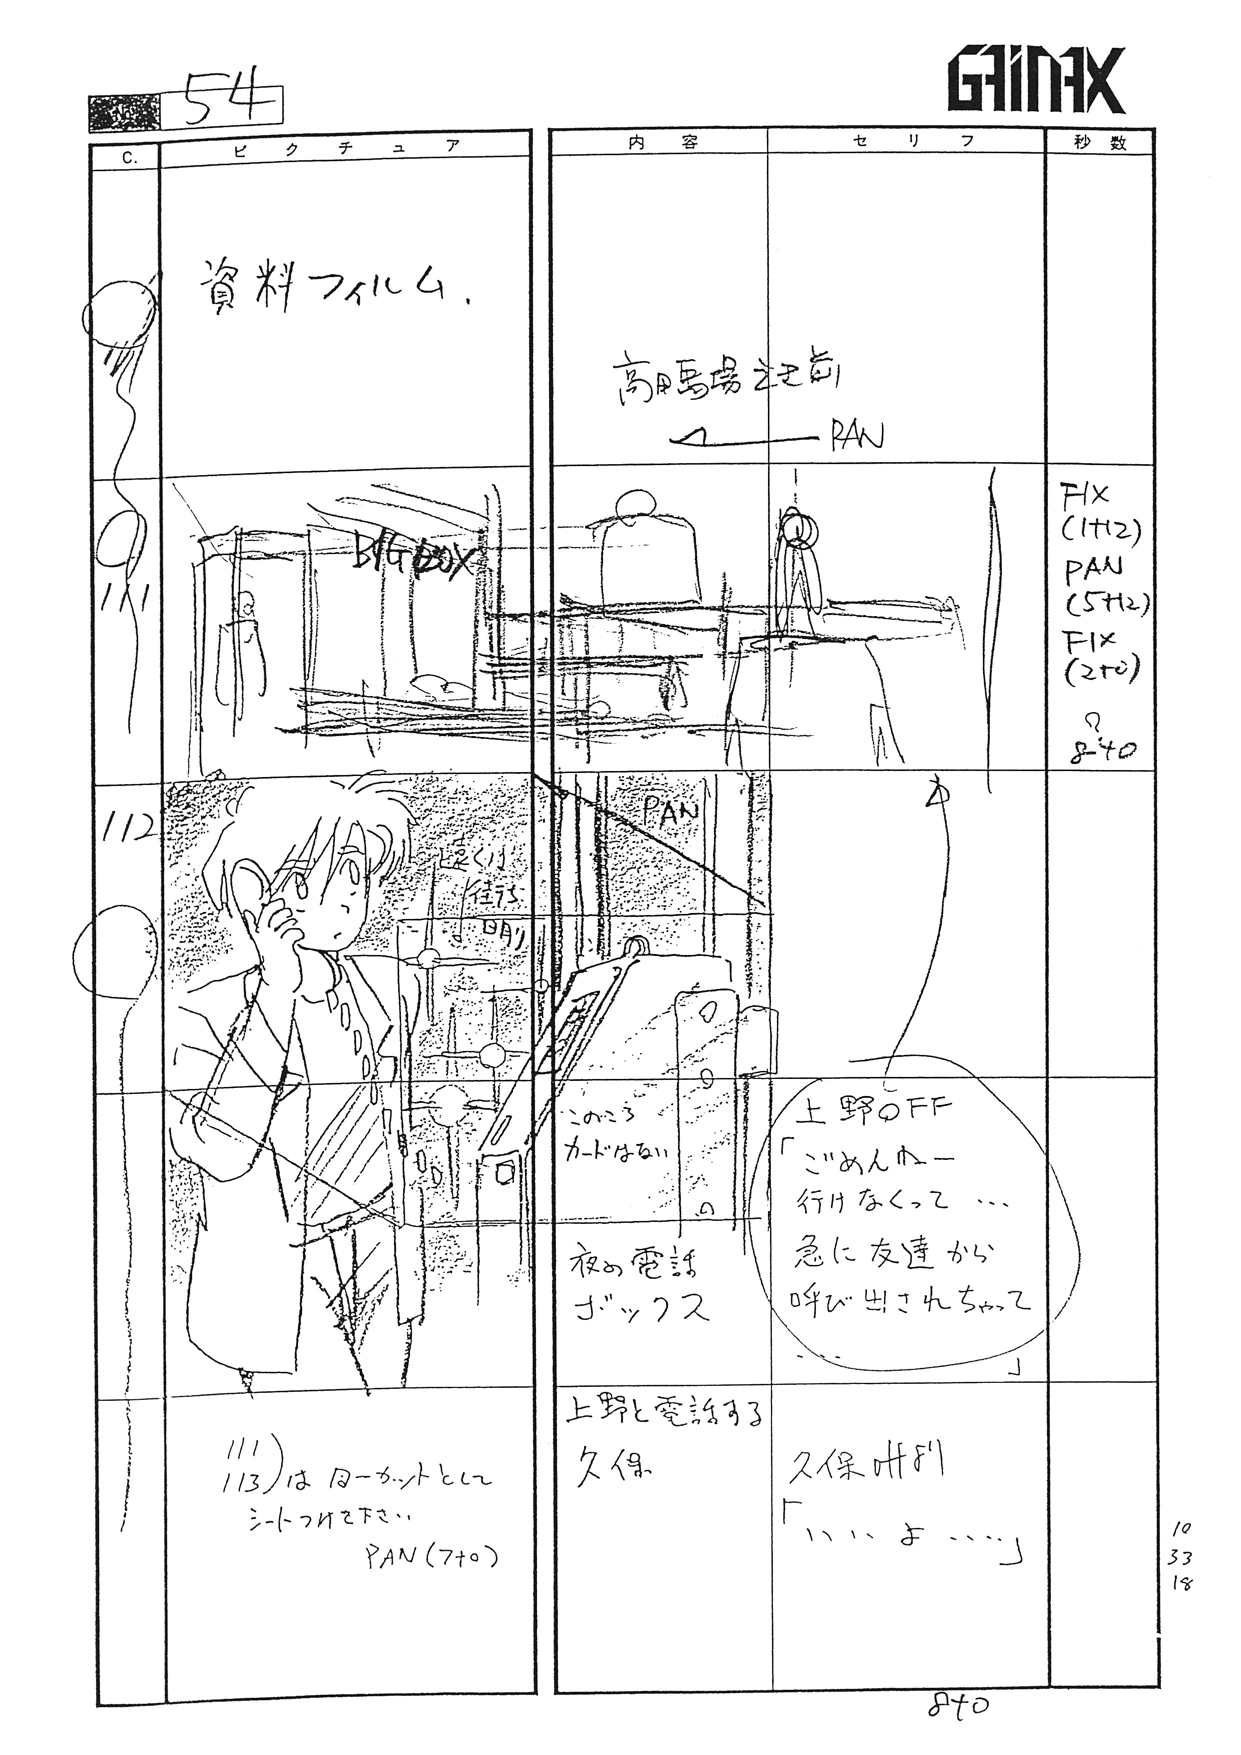 GAINAX
No.
54
C.
ピクチュア
内容
セリフ
秒数
資料フィルム.
高田馬場
前
PAN
111
BIG BOX
FIX
(1+12)
PAN
(5+12)
FIX
(2+0)
?
8+0
112
PAN
遠くは
街
このころ
カードはない
夜の電話
ボックス
上野OFF
「ごめんねー
行けなくって…
急に友達から
呼び出されちゃって
……」
上野と電話する
久保
111
113)は
カットとして
シートつけて下さい
PAN(7+0)
久保
「いいよ……」
10
33
18
8+0